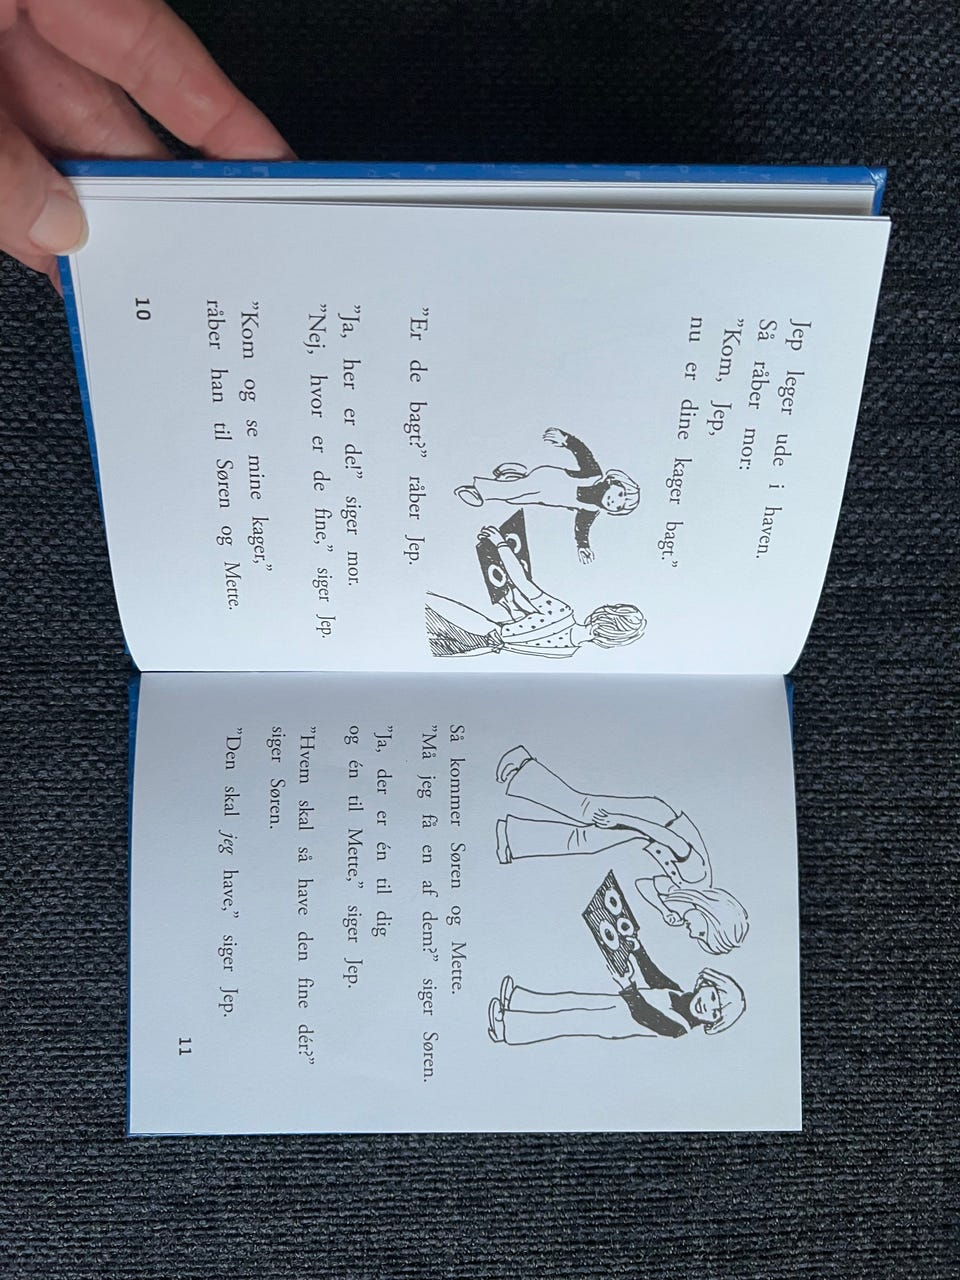 Jep leger ude i haven.
Så råber mor:
”Kom, Jep,
nu er dine kager bagt.”
”Er de bagt?” råber Jep.
”Ja, her er de!” siger mor.
”Nej, hvor er de fine,” siger Jep.
”Kom og se mine kager,”
råber han til Søren og Mette.
10
Så kommer Søren og Mette.
”Må jeg få en af dem?” siger Søren.
”Ja, der er én til dig
og én til Mette,” siger Jep.
”Hvem skal så have den fine dér?”
siger Søren.
”Den skal jeg have,” siger Jep.
11